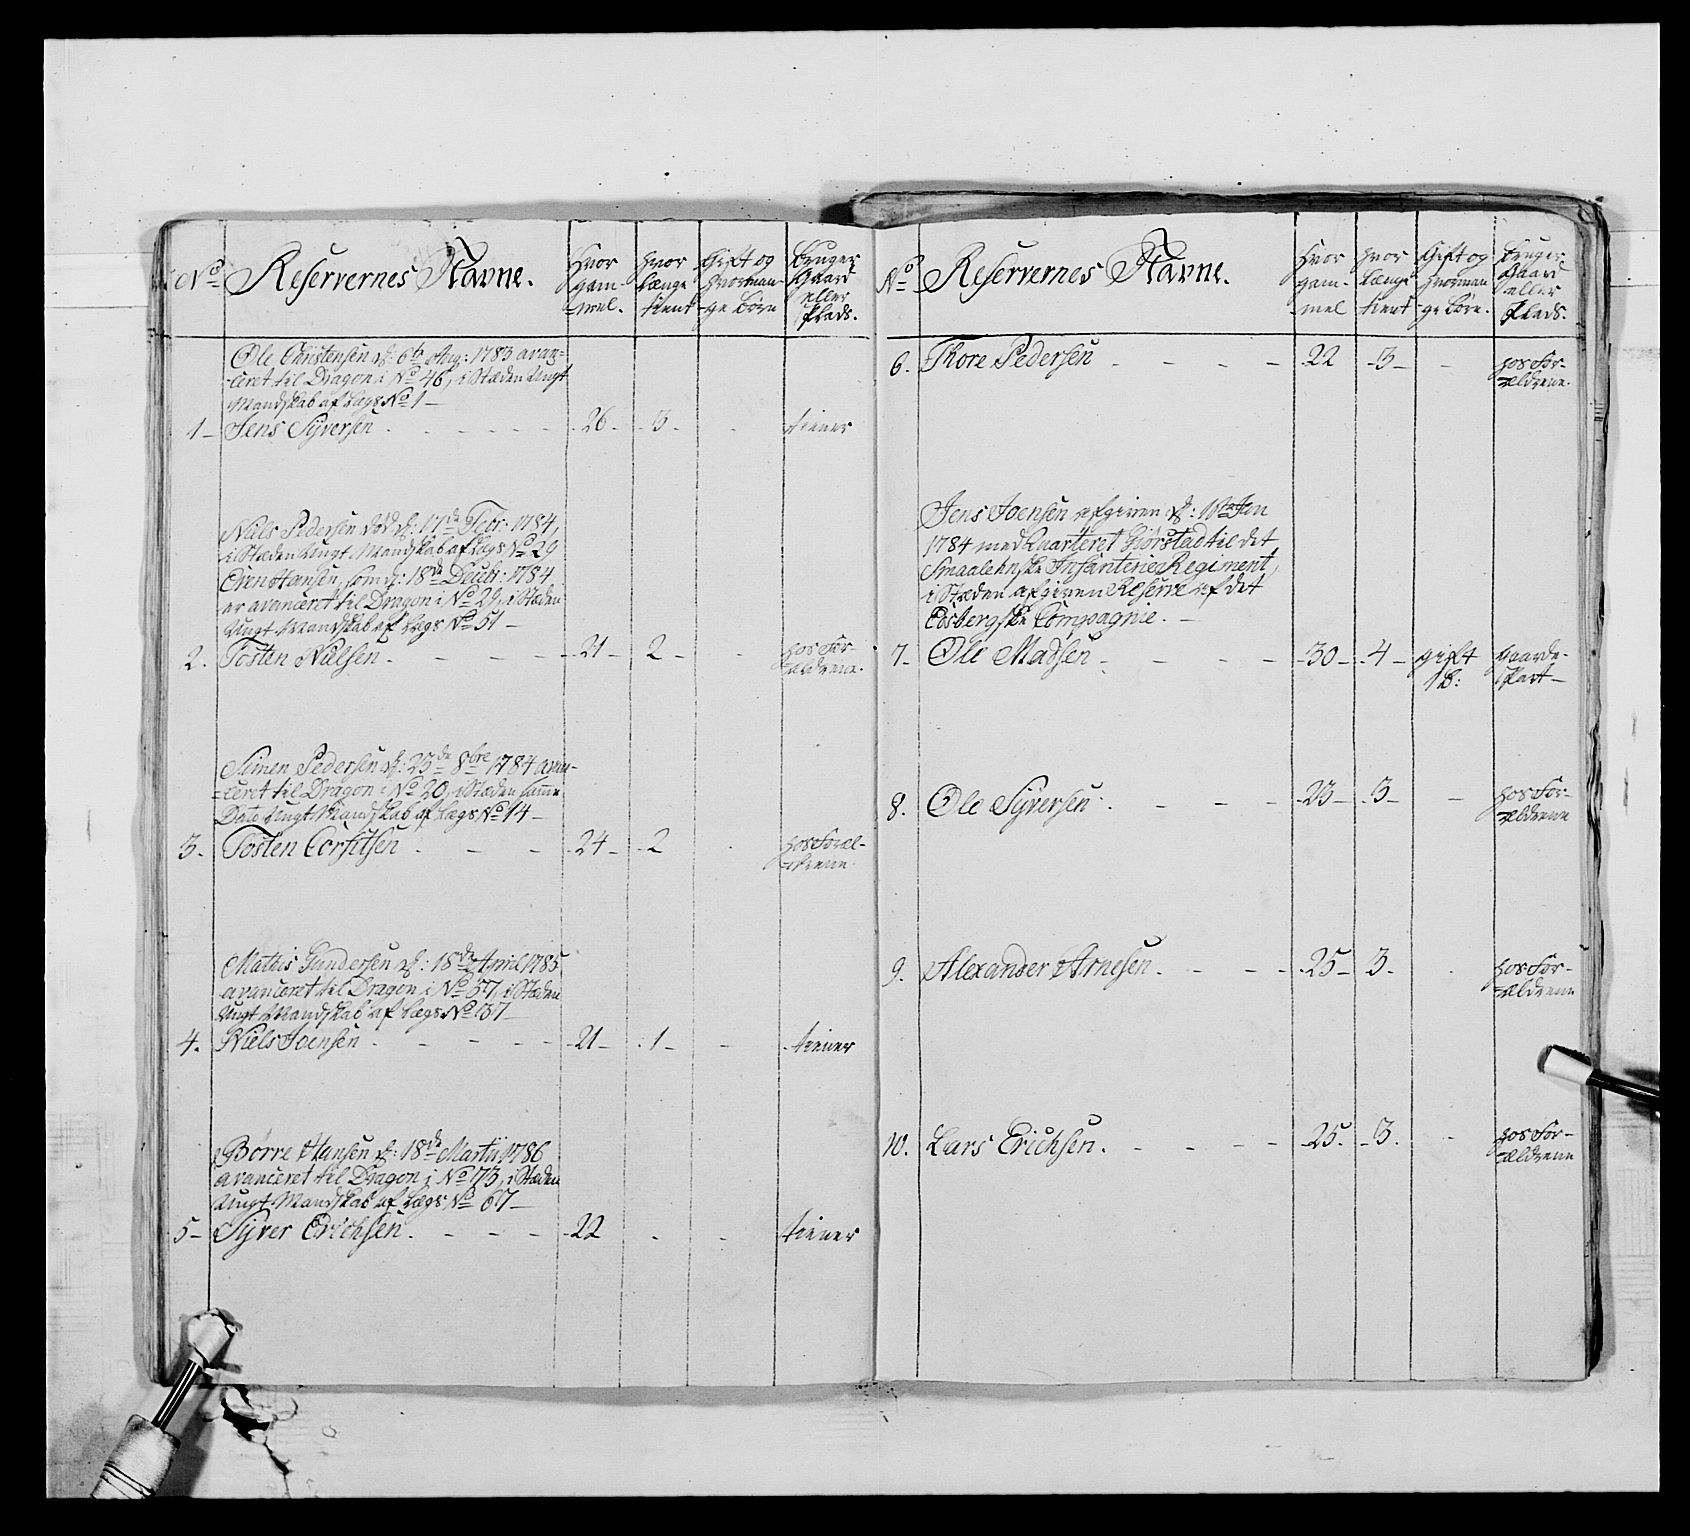 No
Reservernes Navne.
Hvor
gam-
-mel.
hvor
længe
tient
Gift og
hvorman-
-ge børn
Bruger
Gaard
eller
Plads.
Ole Christensen d: 6te Aug: 1783 avan-
-ceret til Dragon i No 46, i Stæden Ungt
Mandskab af Lægs No 1 —
1 — Jens Syversen - 26 - 3 - - tiener
Niels Pedersen død d: 17de Febr: 1784,
i Stæden Ungt Mandskab af Lægs No 29
Even Hansen, som d: 18de Decbr: 1784
er avanceret til Dragon i No 29, i Stæden
Ungt Mandskab af Lægs No 51 —
2. Tosten Nielsen - 21 - 2 - - hos For-
-ældrene.
Simen Pedersen d: 23de 8bre 1784 avan-
-ceret til Dragon i No 20, i Stæden samme
Dato Ungt Mandskab af Lægs No 14 —
3. Tosten Corfitsen - 24 - 2 - hos Foræl-
-drene.
Mathis Gundersen d: 18de April 1785
avanceret til Dragon i No 57, i Stæden
Ungt Mandskab af Lægs No 37 —
4. Niels Joensen - 21 - 1 - - tiener
Børre Hansen d: 18de Martii 1786
avanceret til Dragon i No 73, i Stæden
Ungt Mandskab af Lægs No 67 —
5 — Syver Erichsen. - 22 - - tiener
No
Reservernes Navne.
Hvor
gam-
-mel
hvor
længe
tient
Gift og
hvorman
-ge børn.
Bruger
Gaard
eller
Plads.
6. Thore Pedersen - 22 - 3 - - hos For-
-ældrene.
Jens Joensen afgiven d: 1te Jan
1784 med Quarteret Giørstad til det
Smaalehnske Infanterie Regiment,
i Stæden afgiven Reserve af det
Edsbergske Compagnie. —
7 — Ole Madsen - 30 - 4 - gift Gaarde-
1 B: Part —
8. Ole Syversen - 23 - 3 - - hos For-
-ældrene
9. Alexander Arnesen. - 25 - 3 - hos For-
-ældrene
10. Lars Erichsen. - 25. - 3. - hos For-
-ældrene